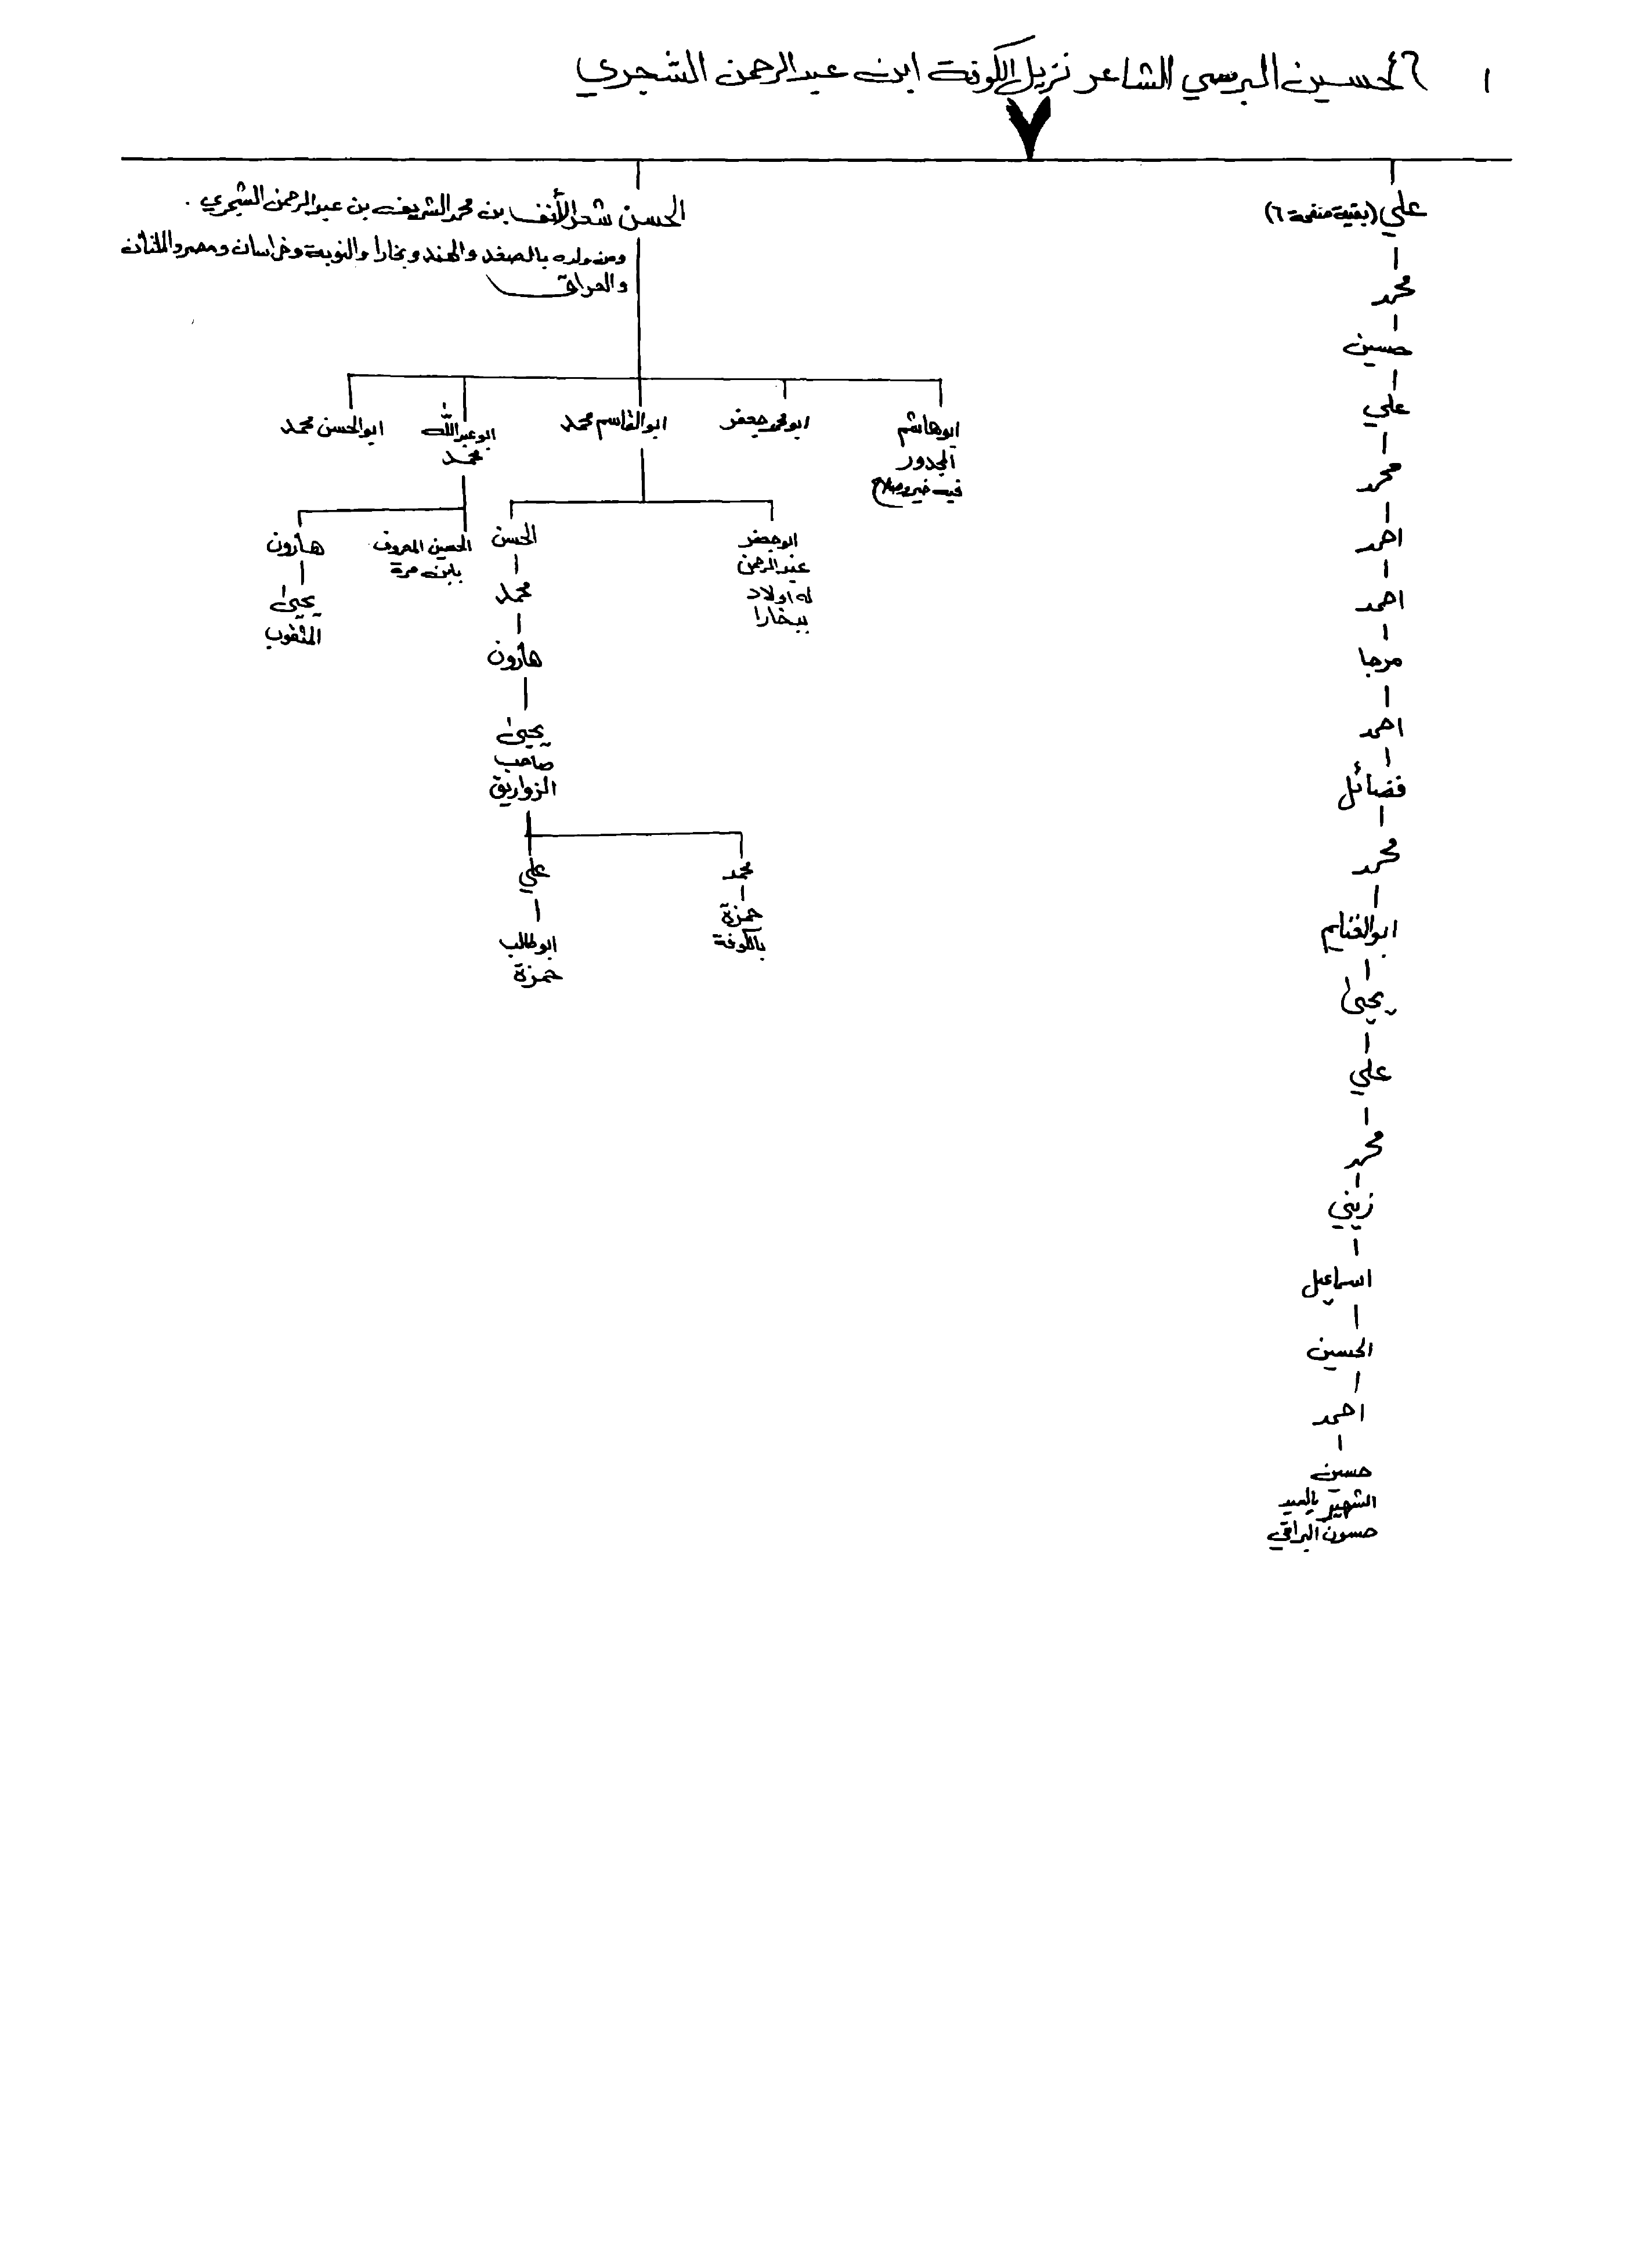 ١ ٦ الحسين البرسي الشاعر نزيل الكوفة ابن عبدالرحمن الشجري
علي (بقية صفحة ٦)
محمد
حسين
علي
محمد
احمد
احمد
مرجا
احمد
فضائل
محمد
ابوالغنايم
يحيى
علي
محمد
زيني
اسماعيل
الحسين
احمد
حسين
الشهير بالسيد
حسون البراقي
الحسن شعر الأنف بن محمد الشريف بن عبدالرحمن الشجري .
ومن ولده بالصغد والهند وبخارا والنوبة وخراسان ومصر والملتان
والعراق
ابوهاشم
المجدور
فيه خير وصلاح
ابومحمد جعفر
ابوالقاسم محمد
ابوعبدالله
محمد
ابوالحسن محمد
ابوجعفر
عبدالرحمن
له اولاد
ببخارا
الحسن
محمد
هارون
يحيى
صاحب
الزواريق
محمد
حمزة
بالكوفة
علي
ابوطالب
حمزة
الحسين المعروف
بابن مرة
هارون
يحيى
المثقوب